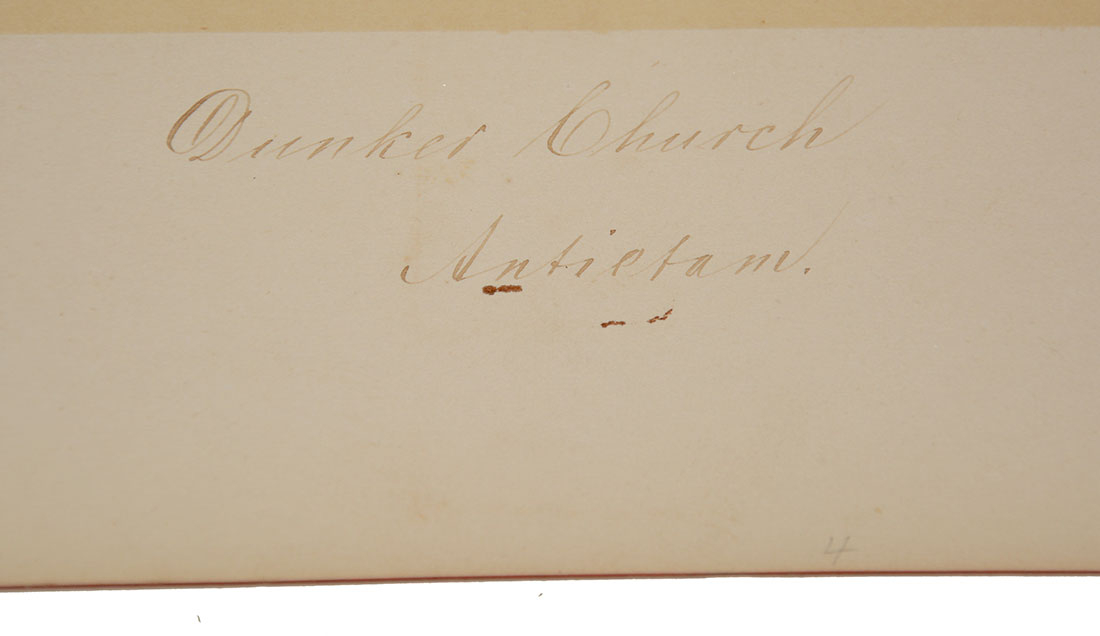 Dunker Church
Antietam.
4